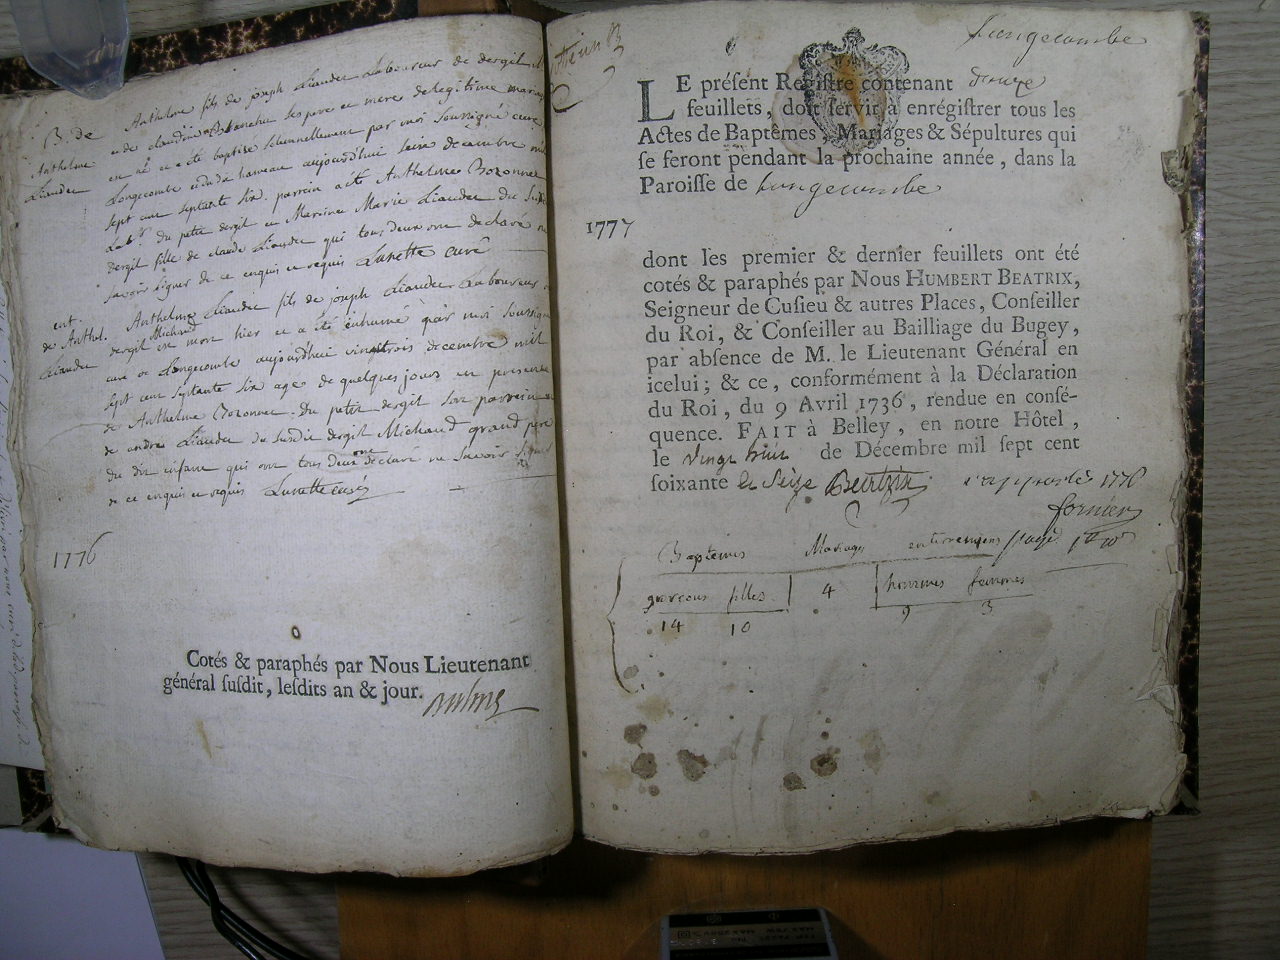 B. de
Anthelme
Liaudet
Anthelme fils de joseph Liaudet Laboureur de dergil et
de claudine Blanchin ses pere et mere de legitime mariage
est né et a été baptise solennellement par moi soussigné curé
Longecombe et dudit hameau aujourd'hui seize decembre mil
sept cent septante six. parrein a été Anthelme Bozonnet
Lab.r du petit dergil et Marraine Marie Liaudet du susdit
dergil fille de claude Liaudet qui tous deux ont declaré ne
savoir signer de ce enquis et requis Lunette curé
ent.
de Anthel.
Liaudet
Anthelme Liaudet fils de joseph Liaudet Laboureur
dergil Michaud est mort hier et a été enhumé par moi soussigné
curé de Longecombe aujourd'hui vingt trois decembre mil
sept cent septante six age de quelques jours en presence
de Anthelme Bozonnet du petit dergil son parrein et
de andre Liaudet du susdit dergil Michaud grand pere
du dit enfant qui ont tous deux declare ne savoir signer
de ce enquis et requis Lunette curé
1776
Cotés & paraphés par Nous Lieutenant
général ſuſdit, leſdits an & jour.
Longecombe
LE préſent Regiſtre contenant douze
feuillets, doit ſervir à enrégiſtrer tous les
Actes de Baptêmes, Mariages & Sépultures qui
ſe feront pendant la prochaine année, dans la
Paroiſſe de Longecombe
1777
dont les premier & dernier feuillets ont été
cotés & paraphés par Nous HUMBERT BEATRIX,
Seigneur de Cuſieu & autres Places, Conſeiller
du Roi, & Conſeiller au Bailliage du Bugey,
par abſence de M. le Lieutenant Général en
icelui; & ce, conformément à la Déclaration
du Roi, du 9 Avril 1736, rendue en conſé-
quence. FAIT à Belley, en notre Hôtel,
le vingt huit de Décembre mil ſept cent
ſoixante et seize Beatrix rapportés 1776
fornier
Baptemes Mariages enterremens
garcons filles 4 hommes femmes
14 10 9 3